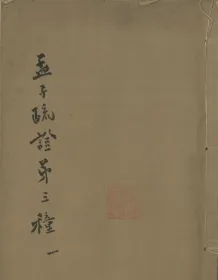 孟子疏證弟三種 一